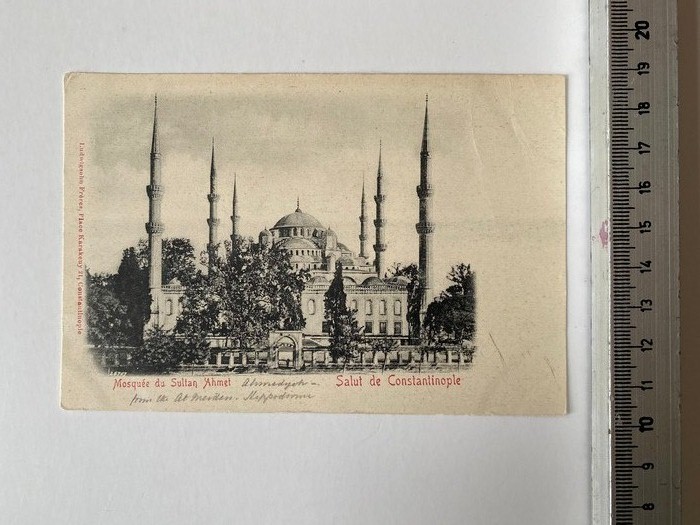 Ludwigsohn Frères, Place Karakeuy 21, Constantinople
Mosquée du Sultan Ahmet
Salut de Constantinople
from the At Meidan. Hippodrome
20
19
18
17
16
15
14
13
12
11
10
9
8